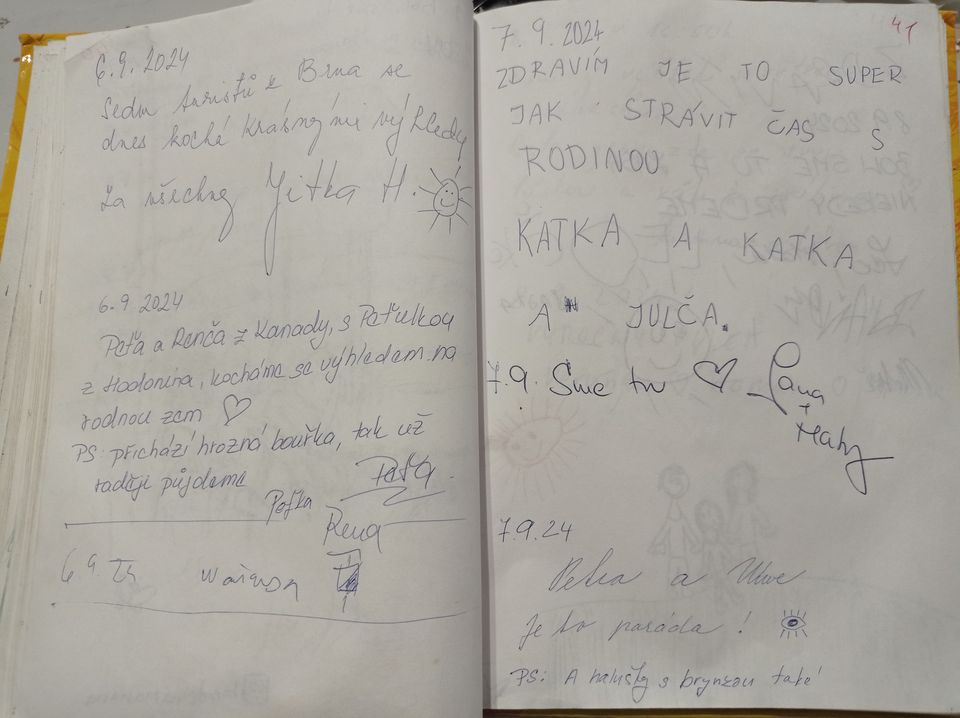 6.9.2024
Sedm turistů z Brna se
dnes kochá krásnými výhledy
Za všechny Jitka H.
6.9.2024
Peťa a Renča z Kanady, s Peťulkou
z Hodonína, kocháme se výhledem na
rodnou zem
PS: přichází hrozná bouřka, tak už
raději půjdeme
Peťka
Peťa
Rena
6.9.24
7.9.2024
41
ZDRAVÍM JE TO SUPER
JAK STRÁVIT ČAS S
RODINOU
KATKA A KATKA
A JULČA.
7.9. Sme tu
Lana
+
Maty
7.9.24
a
Je to paráda!
PS: A halušky s brynzou také